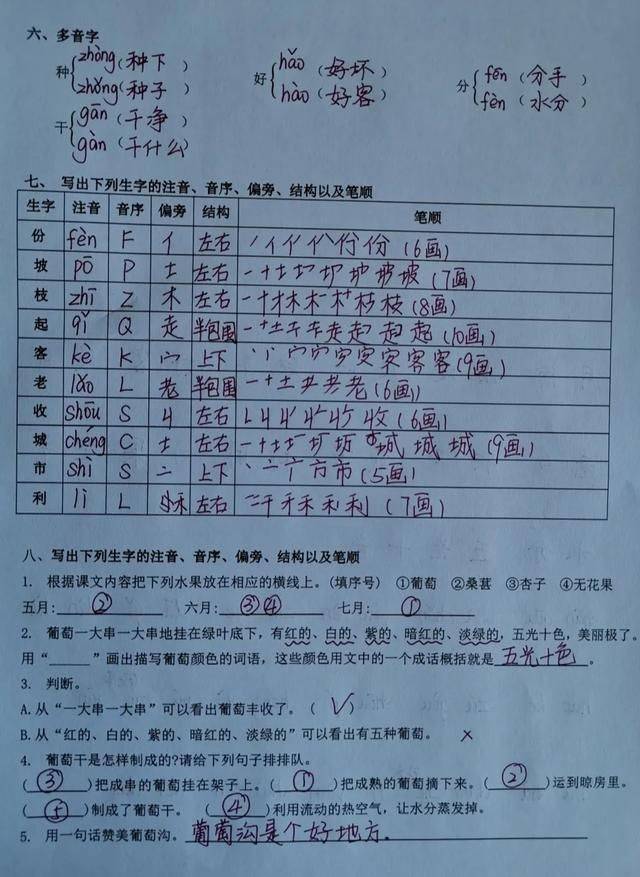 六、多音字
种{zhòng(种下) zhǒng(种子) 好{hǎo(好坏) hào(好客) 分{fēn(分手) fèn(水分)
干{gān(干净) gàn(干什么)
七、 写出下列生字的注音、音序、偏旁、结构以及笔顺
生字 注音 音序 偏旁 结构 笔顺
份 fèn F 亻 左右 (6画)
坡 pō P 土 左右 (7画)
枝 zhī Z 木 左右 (8画)
起 qǐ Q 走 半包围 (10画)
客 kè K 宀 上下 (9画)
老 lǎo L 老 半包围 (6画)
收 shōu S 左右 (6画)
城 chéng C 土 左右 (9画)
市 shì S 上下 (5画)
利 lì L 左右 (7画)
八、写出下列生字的注音、音序、偏旁、结构以及笔顺
1. 根据课文内容把下列水果放在相应的横线上。(填序号) ①葡萄 ②桑葚 ③杏子 ④无花果
五月:② 六月:③④ 七月:①
2. 葡萄一大串一大串地挂在绿叶底下，有红的、白的、紫的、暗红的、淡绿的，五光十色，美丽极了。
用“_____”画出描写葡萄颜色的词语，这些颜色用文中的一个成话概括就是五光十色。
3. 判断。
A.从“一大串一大串”可以看出葡萄丰收了。(√)
B.从“红的、白的、紫的、暗红的、淡绿的”可以看出有五种葡萄。 ×
4. 葡萄干是怎样制成的?请给下列句子排排队。
(③)把成串的葡萄挂在架子上。(①)把成熟的葡萄摘下来。(②)运到晾房里。
(⑤)制成了葡萄干。 (④)利用流动的热空气，让水分蒸发掉。
5. 用一句话赞美葡萄沟。葡萄沟是个好地方。